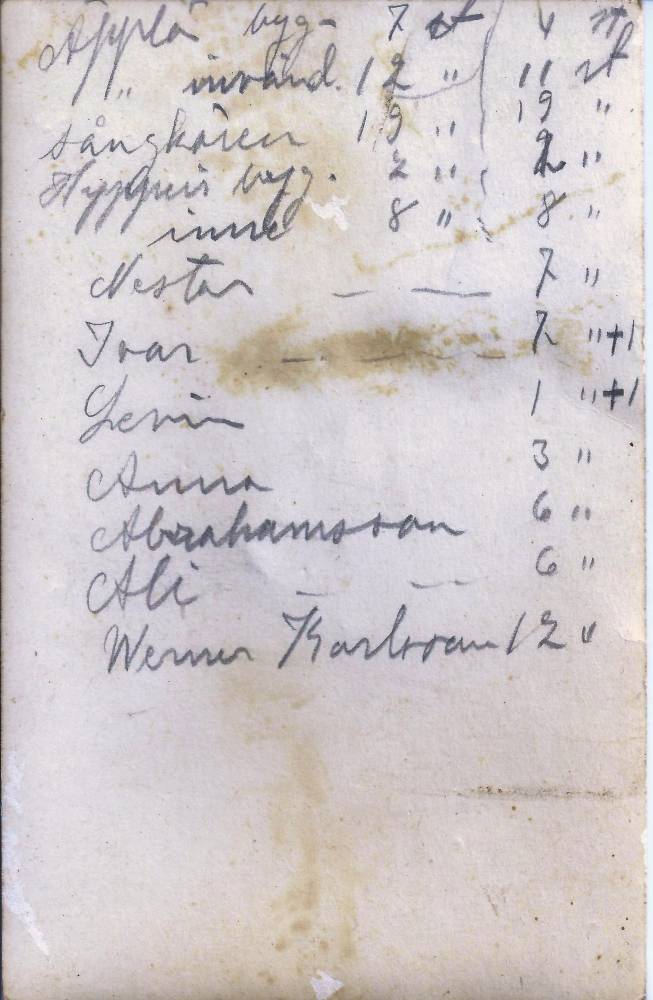 Äpplö byg- 7 st 4 st
" invänd. 12 " 11 st
sångkören 19 " 19 "
byg. 2 " 2 "
inne 8 " 8 "
Nestor — — 7 "
Ivar — — — 7 "+1
Levin 1 "+1
Anna 3 "
Abrahamsson 6 "
Ali — — 6 "
Werner Karlsson 12 "